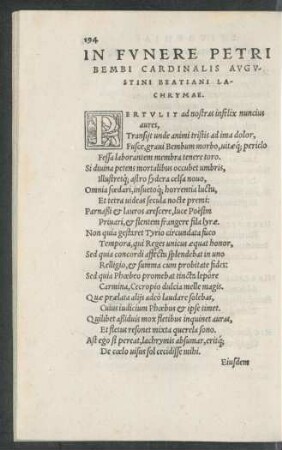 194
IN FVNERE PETRI
BEMBI CARDINALIS AVGV-
STINI BEATIANI LA-
CHRYMAE.
PERTVLIT ad nostras infelix nuncius
aures,
Transijt unde animi tristis ad ima dolor,
Fusce, graui Bembum morbo, uitæq; periclo
Fessa laborantem membra tenere toro.
Si diuina petens mortalibus occubet umbris,
Illustretq; astro sydera celsa nouo,
Omnia fœdari, insuetoq; horrentia luctu,
Et tetra uideas secula nocte premi:
Parnasi & lauros arescere, luce Poësim
Priuari, & flentem frangere fila lyræ.
Non quia gestaret Tyrio circundata fuco
Tempora, qui Reges unicus æquat honor,
Sed quia concordi affectu splendebat in uno
Relligio, & summa cum probitate fides:
Sed quia Phœbeo promebat tincta lepore
Carmina, Cecropio dulcia melle magis.
Quæ prælata alijs adeò laudare solebas,
Cuius iudicium Phœbus & ipse timet.
Quilibet assiduis mox fletibus inquinet aurat,
Et fletus resonet mixta querela sono.
Ast ego si pereat, lachrymis absumar, eritq;
De cœlo uisus sol cecidisse mihi.
Eiusdem